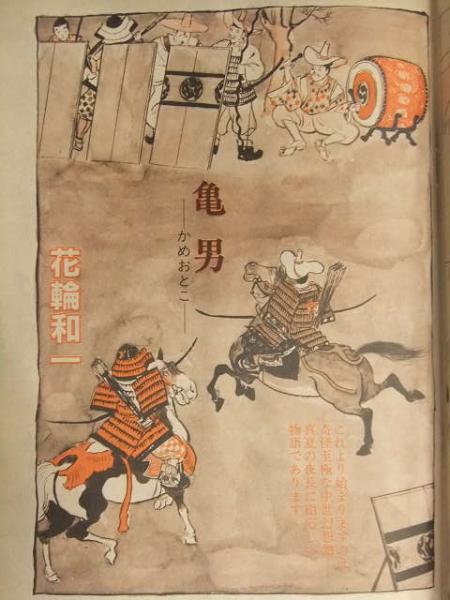 亀男
―かめおとこ―
花輪和一
これより始まりますのは
奇怪至極な中世幻想譚
真夏の夜長に相応しい
物語であります